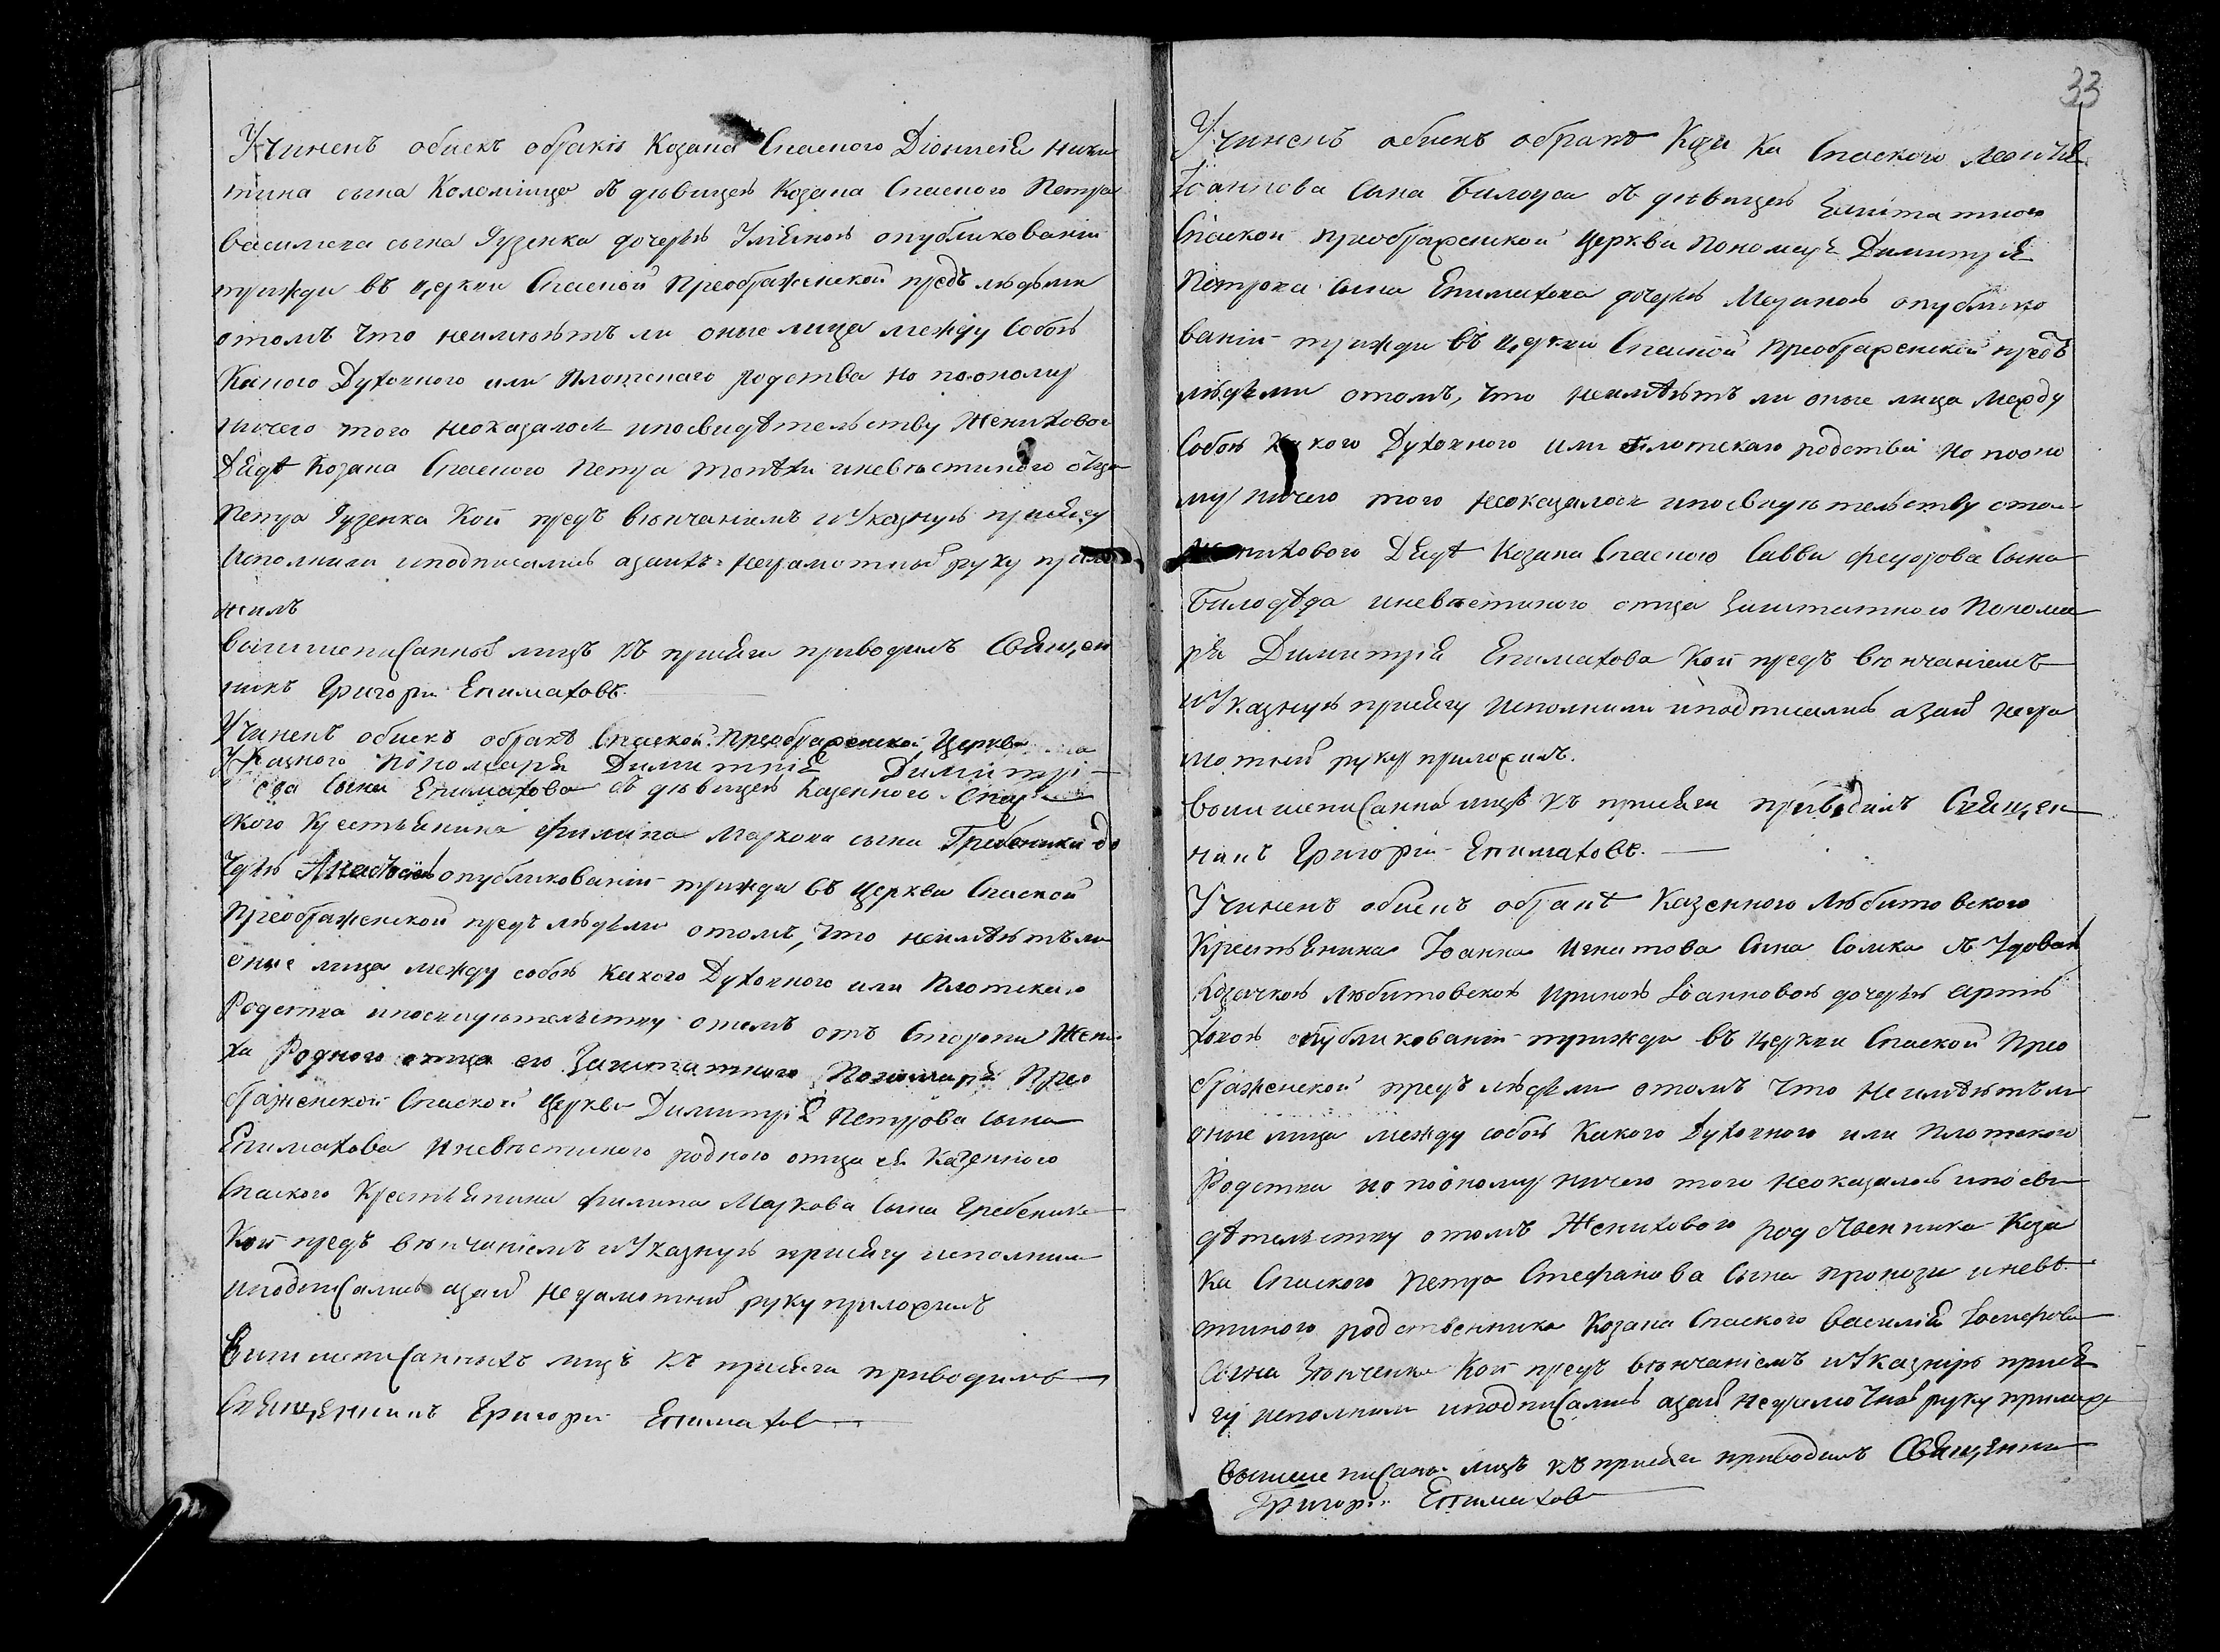 Учиненъ обискъ обракѣ Козака Спаского Діонисія Ники
тина сына Коломійца съ дѣвицею Козака Спаского Петра
Василиева сына Гузенка дочерью Уліяною опубликованіи
трижды въ церкви Спаской Преображенской предъ людьми
отомъ что неимѣютъ ли оные лица между собою
Какого Духовного или Плотского родства но пооному
ничего того неоказалось ипосвидѣтельству Женихового
Дядѣ Козака Спаского Петра иневѣстиного отца
Петра Гузенка Кои предъ вѣнчаніемъ иУказную присягу
Исполнили иподписались азаихъ неграмотный руку прило
жилъ
вышеписанныхъ лицъ къ присяги приводилъ Священ
никъ Григорій Епимаховъ.
Учиненъ обискъ обракѣ Спаской Преображенской Церкви
Указного пономаря Димитрія Димитрі
ева сына Епимахова съ дѣвицею Казенного Спас
ского Крестьянина Филипа Маркова сына Гребеника до
черью опубликованіи трижды въ церкви Спаской
Преображенской предъ людьми отомъ, что неимѣютъ ли
оные лица между собою какого Духовного или Плотского
Родства ипосвидѣтельству отомъ отъ Стороны Жени
ха Родного отца его Заштатного Пономаря Прео
браженской Спаской Церкви Димитрія Петрова сына
Епимахова Иневѣстиного родного отца ея Казенного
Спаского Крестьянина Филипа Маркова сына Гребеника
Кои предъ вѣнчаніемъ иУказную присягу исполнили
иподписались азаихъ неграмотный руку приложилъ
Вышеписанныхъ лицъ къ присяги приводилъ
Священникъ Григорій Епимахов
33
Учиненъ обискъ обракѣ Коза Ка Спаского
Іоаннова Сына Билоуса съ дѣвицею Заштатного
Спаской преображенской Церкви Пономаря Димитрія
Петрова сына Епимахова дочерью опублико
ваніи трижды въ церкви Спаской преображенской предъ
людьми отомъ, что неимѣютъ ли оные лица между
собою Какого Духовного или Плотскаго родства но пооно
му ничего того неоказалось ипосвидѣтельству отом
Женихового Дядѣ Козака Спаского Саввы Федорова Сына
Билодѣда иневѣстиного отца Заштатного Понома
ря Димитрія Епимахова Кои предъ вѣнчаніемъ
иУказную присягу исполнили иподписались азаих негра
мотный руку приложилъ.
вышеписанных лицъ къ присяги приводилъ Священ
никъ Григорій Епимаховъ.
Учиненъ обискъ обракѣ Казенного Любитовского
Крестьянина Іоанна Игнатова Сына Сомка съ Удовою
Козачкою Любитовскою Ириною Іоанновою дочерью
опубликованіи трижды въ церкви Спаской Прео
браженской предъ людьми отомъ что неимѣютъ ли
оные лица между собою Какого Духовного или Плотского
Родства но пооному ничего того неоказалось ипосви
дѣтельству отомъ Женихового родственника Коза
ка Спаского Петра Стефанова Сына иневѣ
стиного родственника Козака Спаского Василія Іосифова
сына Кои предъ вѣнчаніемъ иУказную прися
гу исполнили иподписались азаих неграмотный руку прилож
вышеписаных лицъ къ присяги приводилъ Священни
Григорій Епимахов